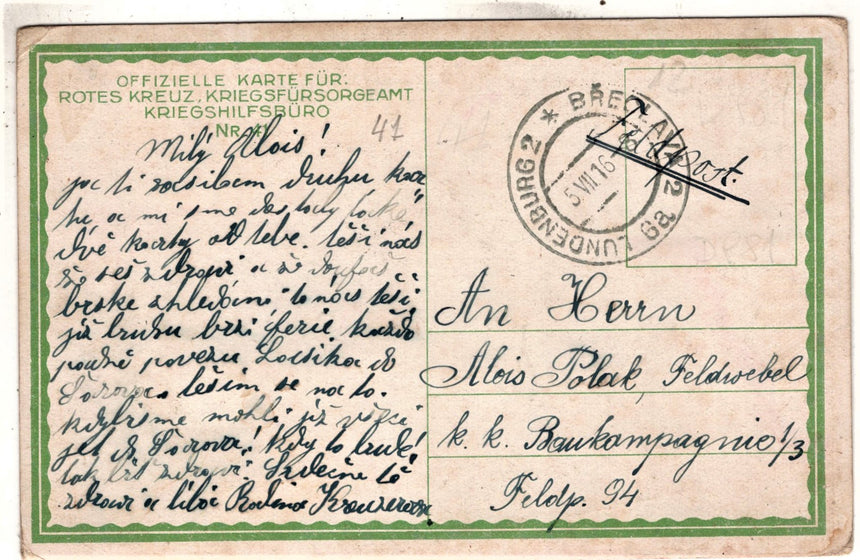 OFFIZIELLE KARTE FÜR:
ROTES KREUZ, KRIEGSFÜRSORGEAMT
KRIEGSHILFSBÜRO
Nr. 41
41
Milý Alois!
jac ti zasílam druhu kar
tu a mi sme dostady také
dvě karty od tebe. těší nás
že seš zdravi a že doufáš
brske zhledáni to nás těší
již budu brzi ferie každo
pádně povezu Lacsika do
těším se na to.
kdybisme mohli již všici
jet do kdy to bude!
tak bit zdravi. Srdečne tě
zdravi a líbá Rodina
BŘECLAV 2
LUNDENBURG 2
5 VII 16
Feldpost.
An Herrn
Alois Polak, Feldwebel
k. k. Baukompagnie 1/3
Feldp. 94